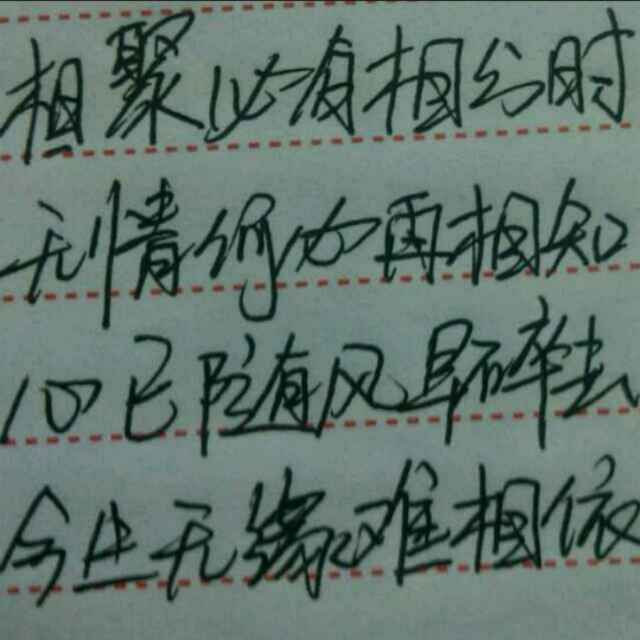 相聚必有相分时
无情何必再相知
心已随风早碎去
今生无缘难相依